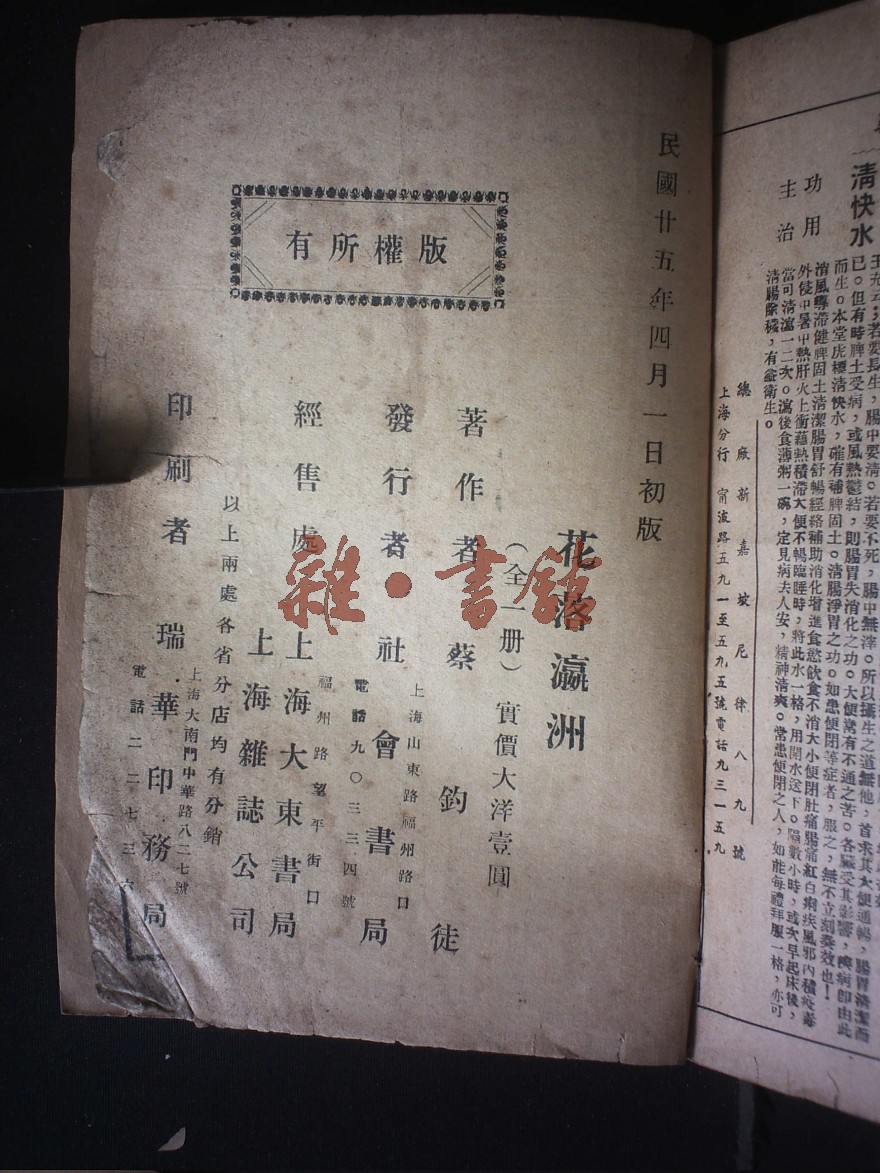 清快水
功用
主治
王充云；若要長生，腸中要清。若要不死，腸中無滓。所以攝生之道無他，首求其大便通暢，腸胃清潔而
已。但有時脾土受病，或風熱鬱結，則腸胃失消化之功。大便常有不通之苦。各臟受其影響，輿病卽由此
而生。本堂虎標清快水，確有補脾固土。清腸淨胃之功。如患便閉等症者，服之，無不立刻奏效也！
消風導滯健脾固土清潔腸胃舒暢經絡補助消化增進食慾飲食不消大小便閉肚痛腸痛紅白痢疾風邪內積疫毒
外侵中暑中熱肝火上衝蘊熱積滯大便不暢臨睡時，將此水一格，用開水送下。隔數小時，或次早起床後，
當可清瀉一二次。瀉後食薄粥一碗，定見病去人安，精神清爽。常患便閉之人，如能每禮拜服一格，亦可
清腸除穢，有益衛生。
總廠新嘉坡尼律八九號
上海分行 甯波路五九一至五九五號電話九三一五九
民國廿五年四月一日初版
花落瀛洲
（全一册）實價大洋壹圓
著作者 蔡鈞徒
上海山東路福州路口
發行者 社會書局
電話九〇三三四號
福州路望平街口
經售處 上海大東書局
上海雜誌公司
以上兩處各省分店均有分銷
上海大南門中華路八二七號
印刷者 瑞華印務局
電話二二七三六
版權所有
雜·書館